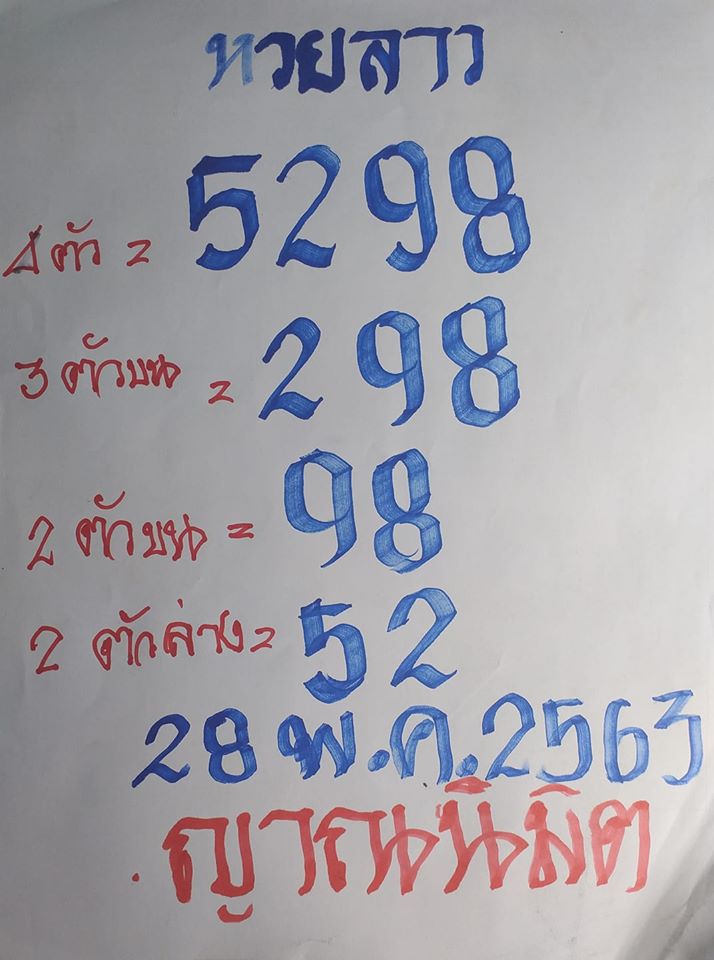 หวยลาว
4 ตัว = 5298
3 ตัวบน = 298
2 ตัวบน = 98
2 ตัวล่าง = 52
28 พ.ค. 2563
ญาณนิมิต